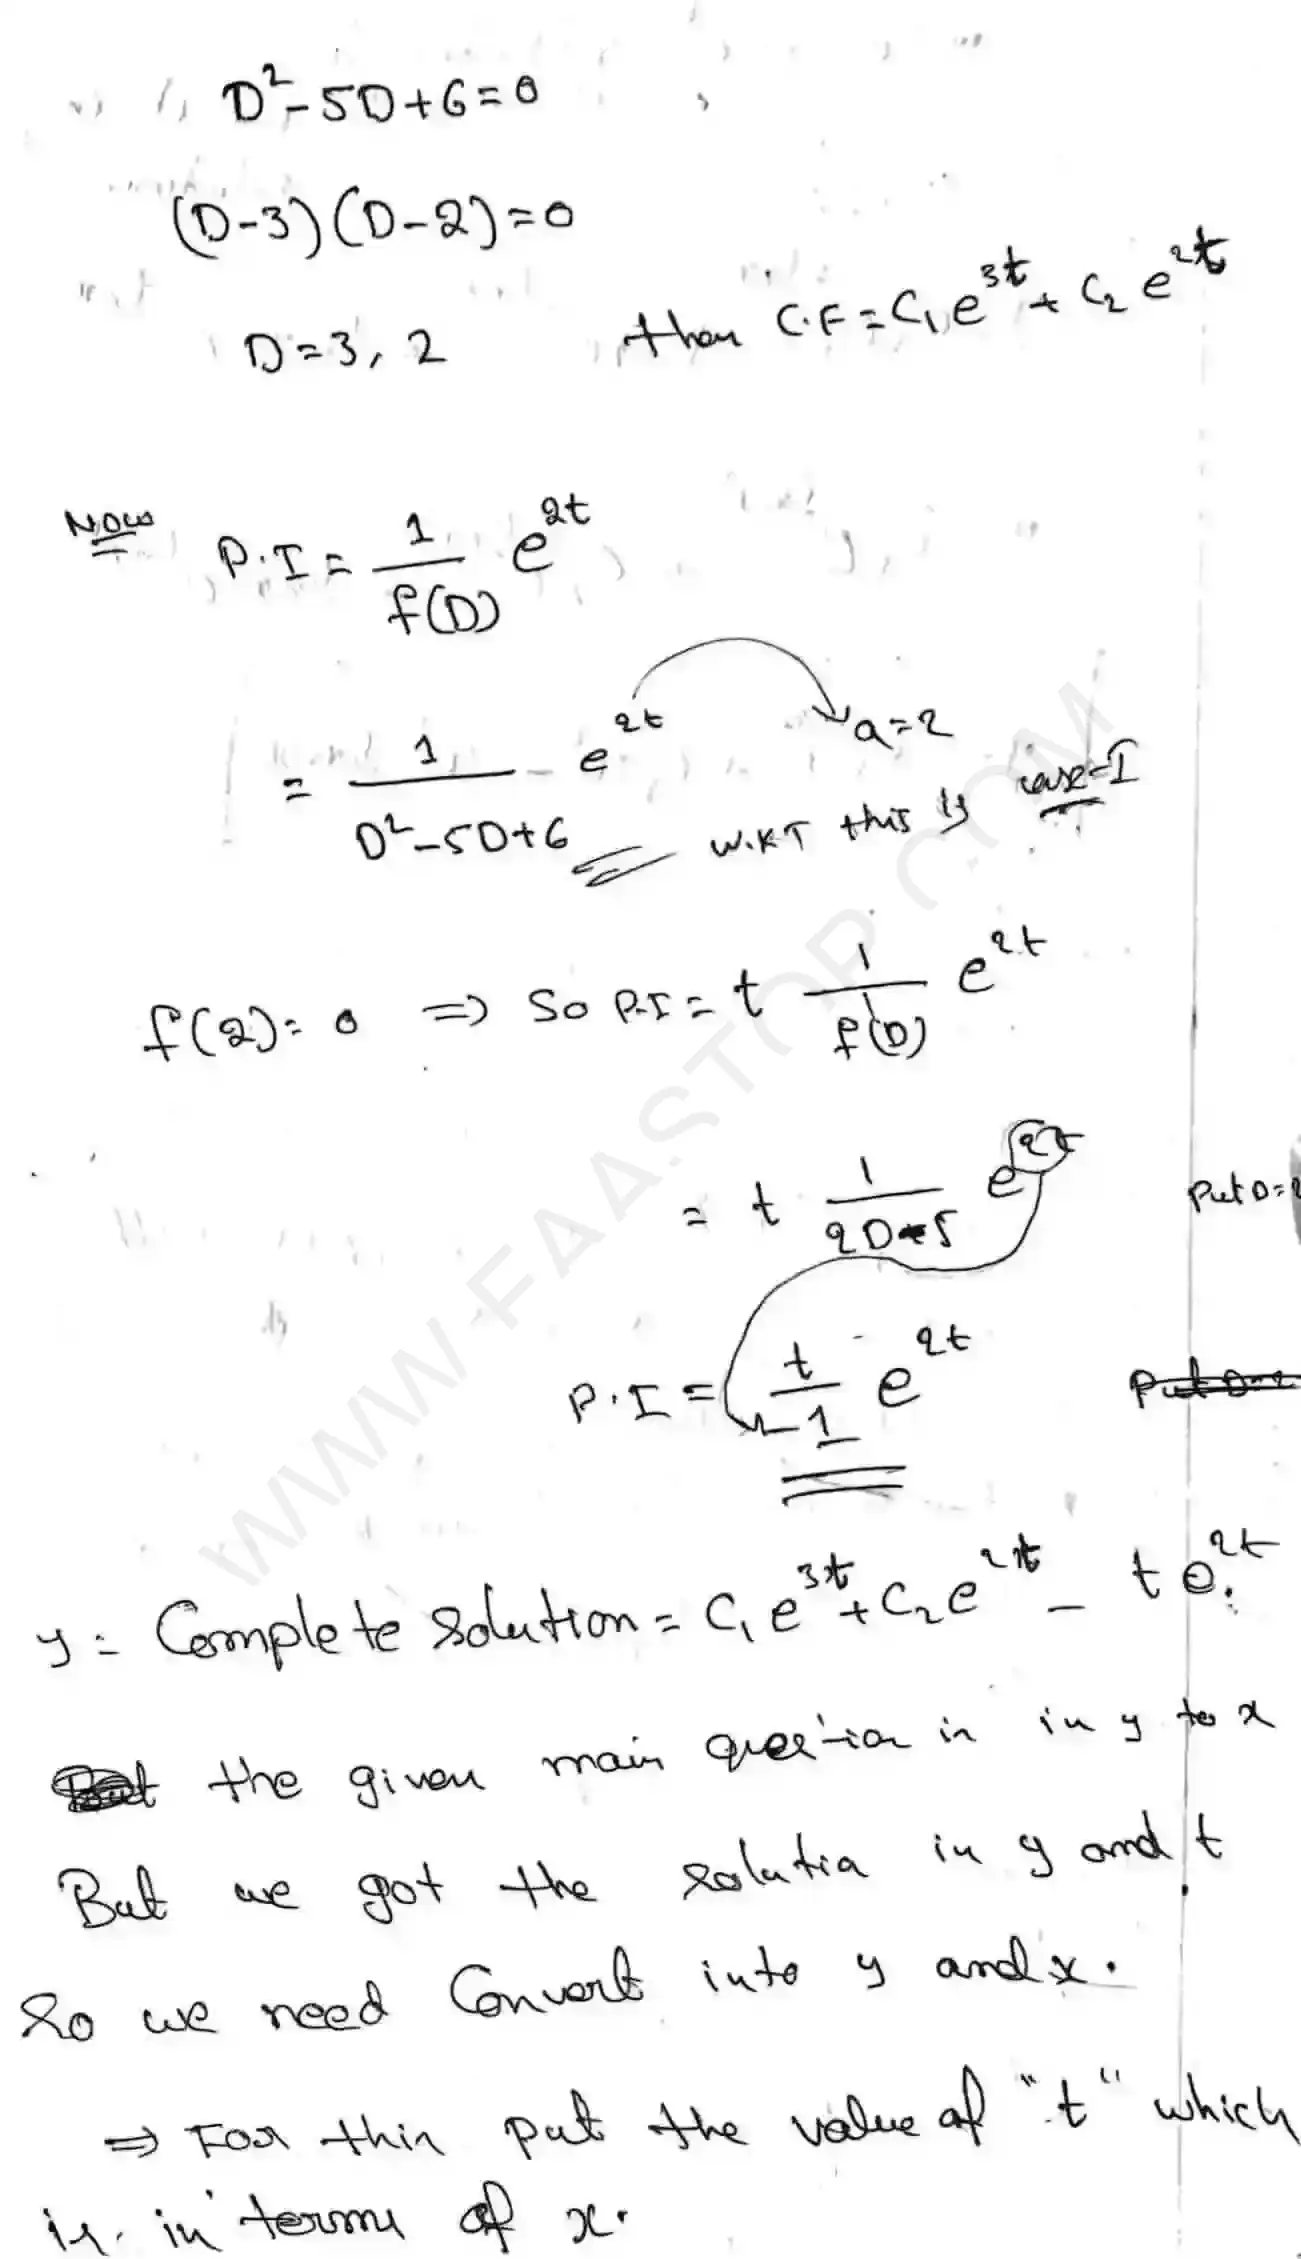 D²-5D+6=0
(D-3)(D-2)=0
D=3, 2 then C.F=C₁e^{3t}+C₂e^{2t}
Now P.I = 1/f(D) e^{2t}
= 1/(D²-5D+6) e^{2t} a=2
W.K.T this is case-I
f(2)=0 ⇒ So P.I = t 1/f'(D) e^{2t}
= t 1/(2D-5) e^{2t} Put D=2
P.I = t/-1 e^{2t}
y = Complete solution = C₁e^{3t}+C₂e^{2t} - t e^{2t}.
the given main question is in y to x
But we got the solutia in y and t
So we need Convert into y and x.
⇒ For this put the value of "t" which
is in terms of x.
WWW.FAASTOP.COM